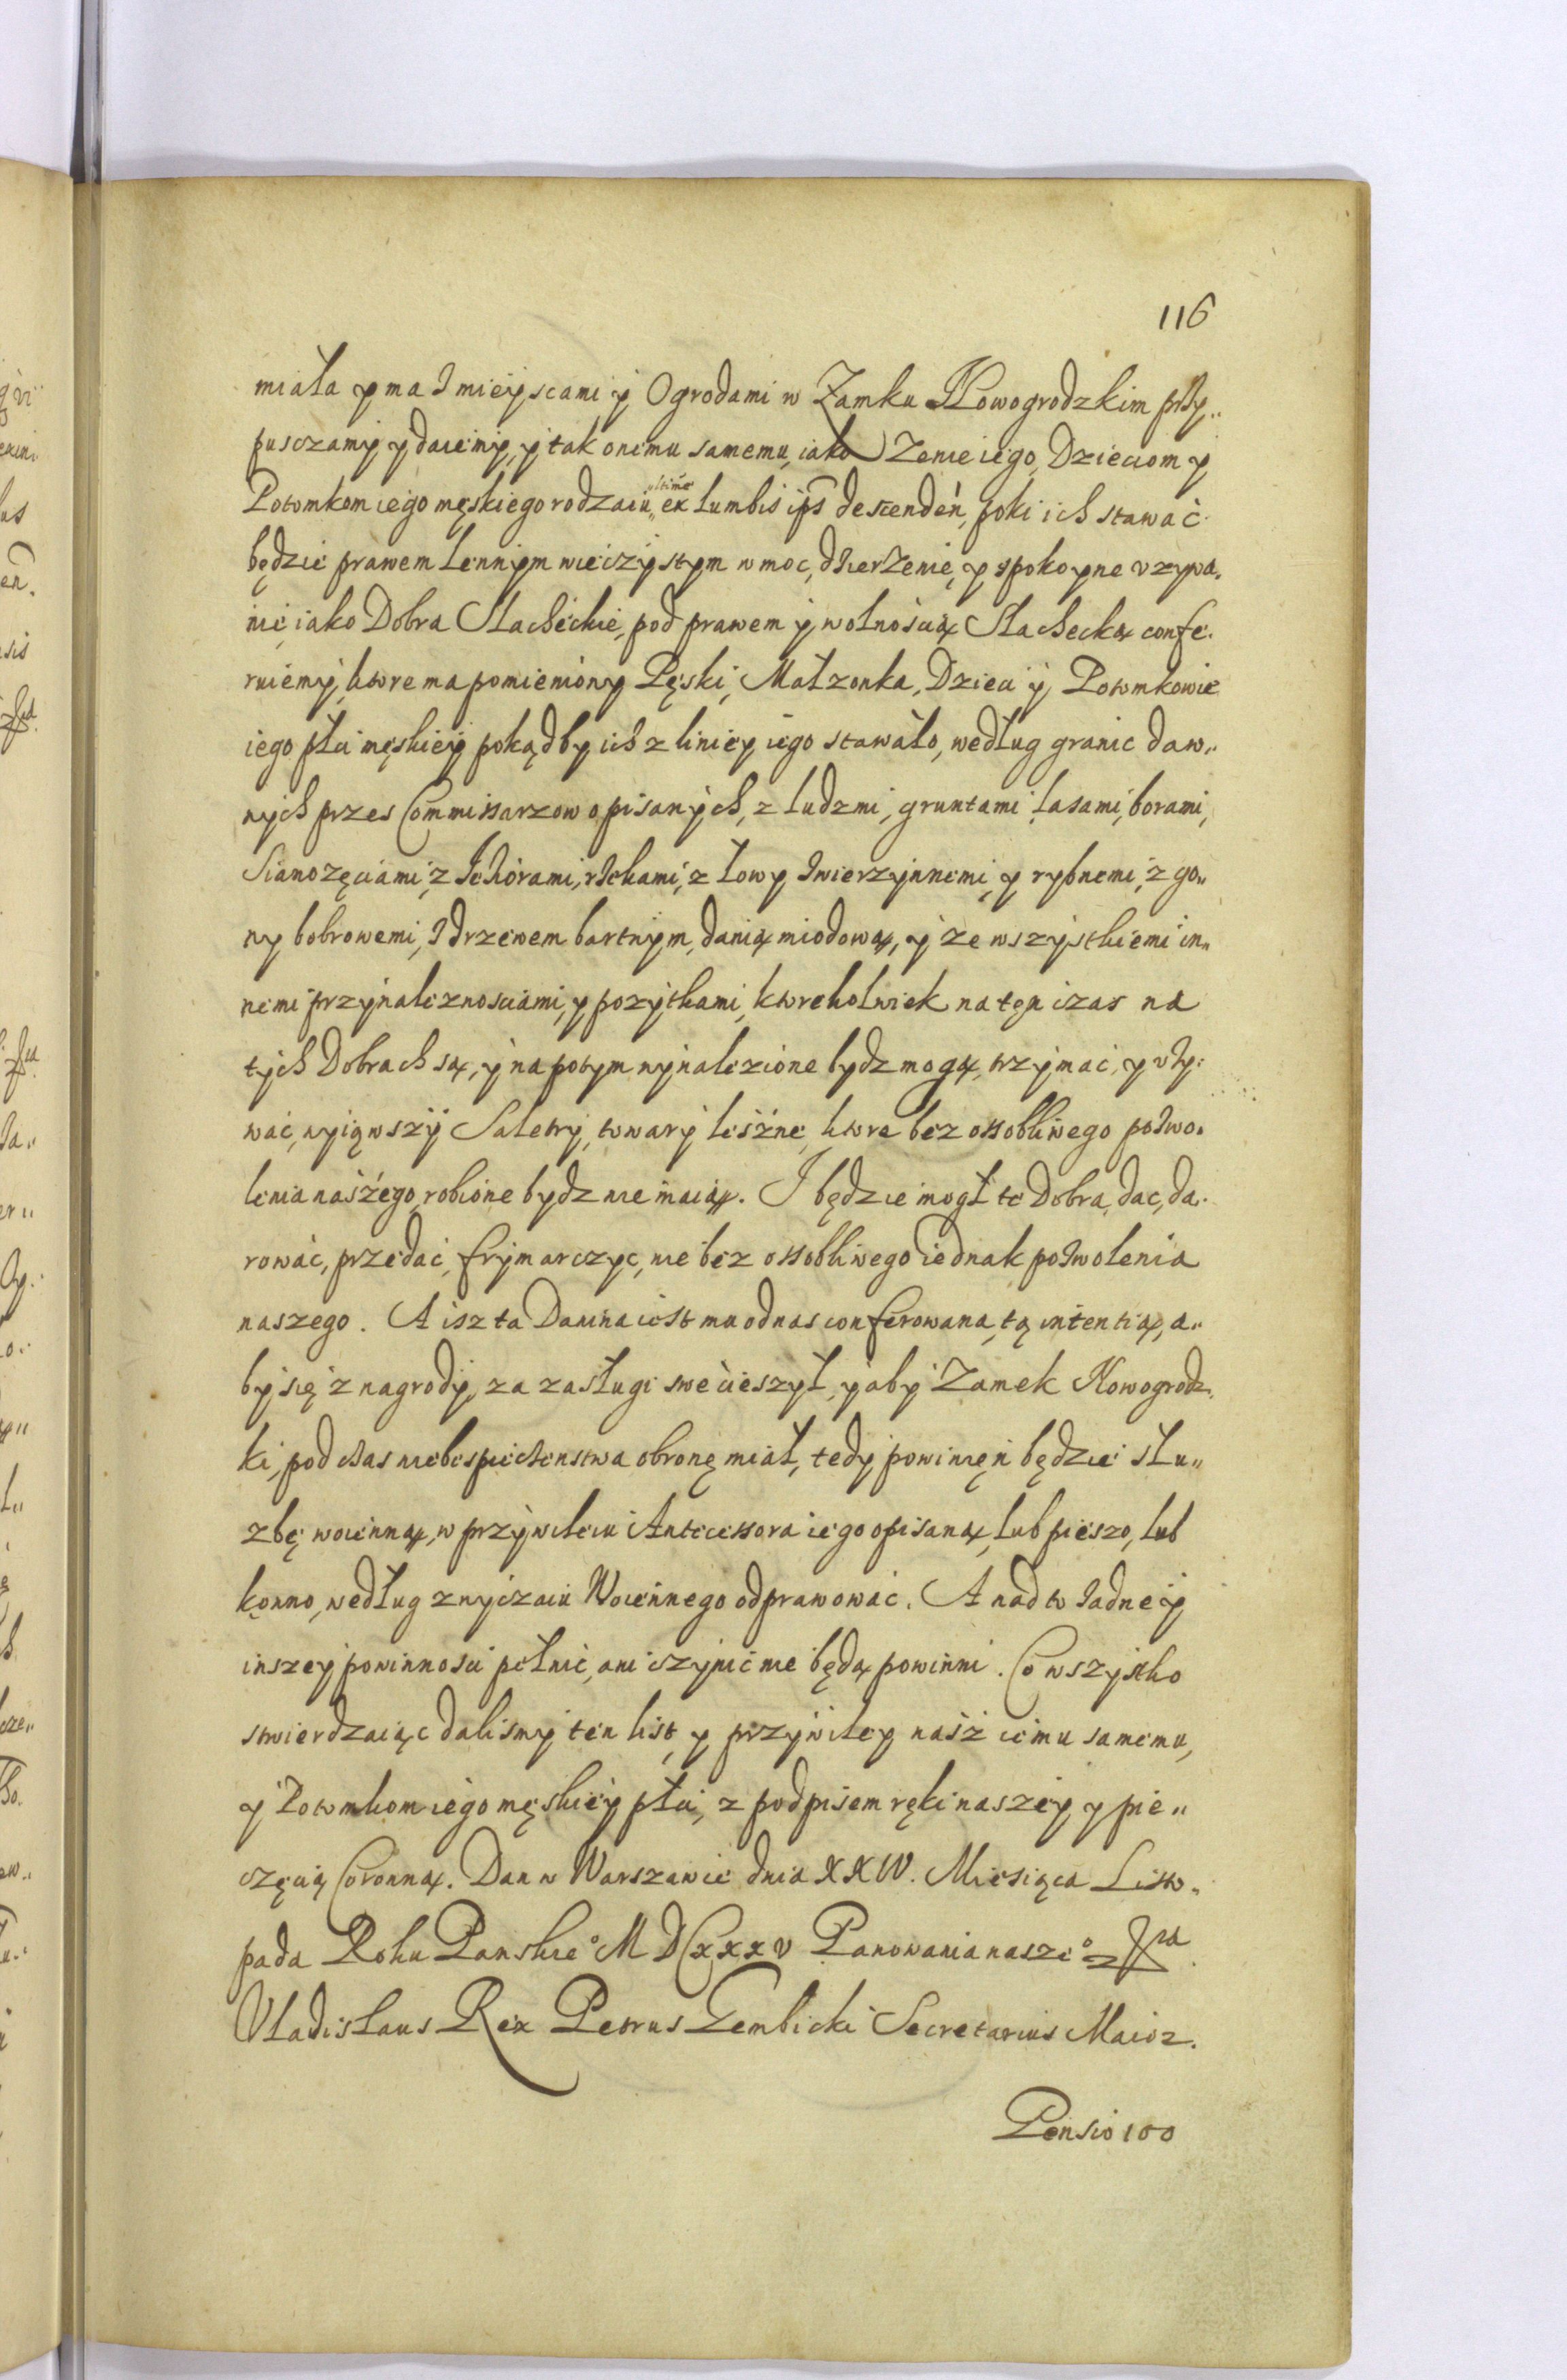 116
miała y ma z mieyscami y Ogrodami w Zamku Nowogrodzkim przy„
pusczamy y daiemy, y tak onemu samemu, iako Zenie iego, Dzieciom y
Potomkom iego męskiego rodzaiu, ltime ex lumbis ips descendeń, poki ich stawać
będzie prawem lennym wieczystym w moc, dzierżenie, y spokoyne vzywa„
nie iako Dobra Slacheckie, pod prawem y wolnością Slachecką confe„
ruiemy, ktore ma pomieniony Pęski, Małzonka, Dzieci y Potomkowie
iego płci męskiey pokądby ich z liniey iego stawało, według granic daw„
nych przes Commissarzow opisanych, z ludzmi, gruntami, lasami, borami,
Sianozęciami, z Ieziorami, rzekami, z łowy zwierzynnemi, y rybnemi, z go„
ny bobrowemi, z drzewem bartnym, danią miodową, y ze wszystkiemi in„
nemi przynaleznosciami, y pozytkami, ktorekolwiek na ten czas na
tych Dobrach są, y na potym wynalezione bydz mogą, trzymać, y vży„
wać, wyiąwszy Saletry, towary leśne, ktore bez ossobliwego pozwo„
lenia naszego, robione bydz nie maią. I będzie mogł te Dobra, dac, da„
rować, przedać, frymarczyc, nie bez ossobliwego iednak pozwolenia
naszego. A isz ta Danina iest mu od nas conferowana, tą intentią, a„
by się z nagrody, za zasługi swe cieszył, y aby Zamek Nowogrodz„
ki, pod czas niebespieczenstwa obronę miał, tedy powinęn będzie słu„
zbę woienną, w przywileiu Antecessora iego opisaną, lub pieszo, lub
konno, według zwyczaiu Woiennego odprawować. A nad to żadney
inszey powinnosci pełnić, ani czynić nie będą powinni. Co wszystko
stwierdzaiąc dalismy ten list, y przywiley nasz iemu samemu,
y Potomkom iego męskiey płci, z podpisem ręki naszey, y pie„
częcią Coronną. Dan w Warszawie dnia XXIV. Miesiąca Listo„
pada Roku Panskie° MDCXXXV Panowania nasze°
Vladislaus Rex Petrus Gembicki Secretarius Maior.
Pensio 100